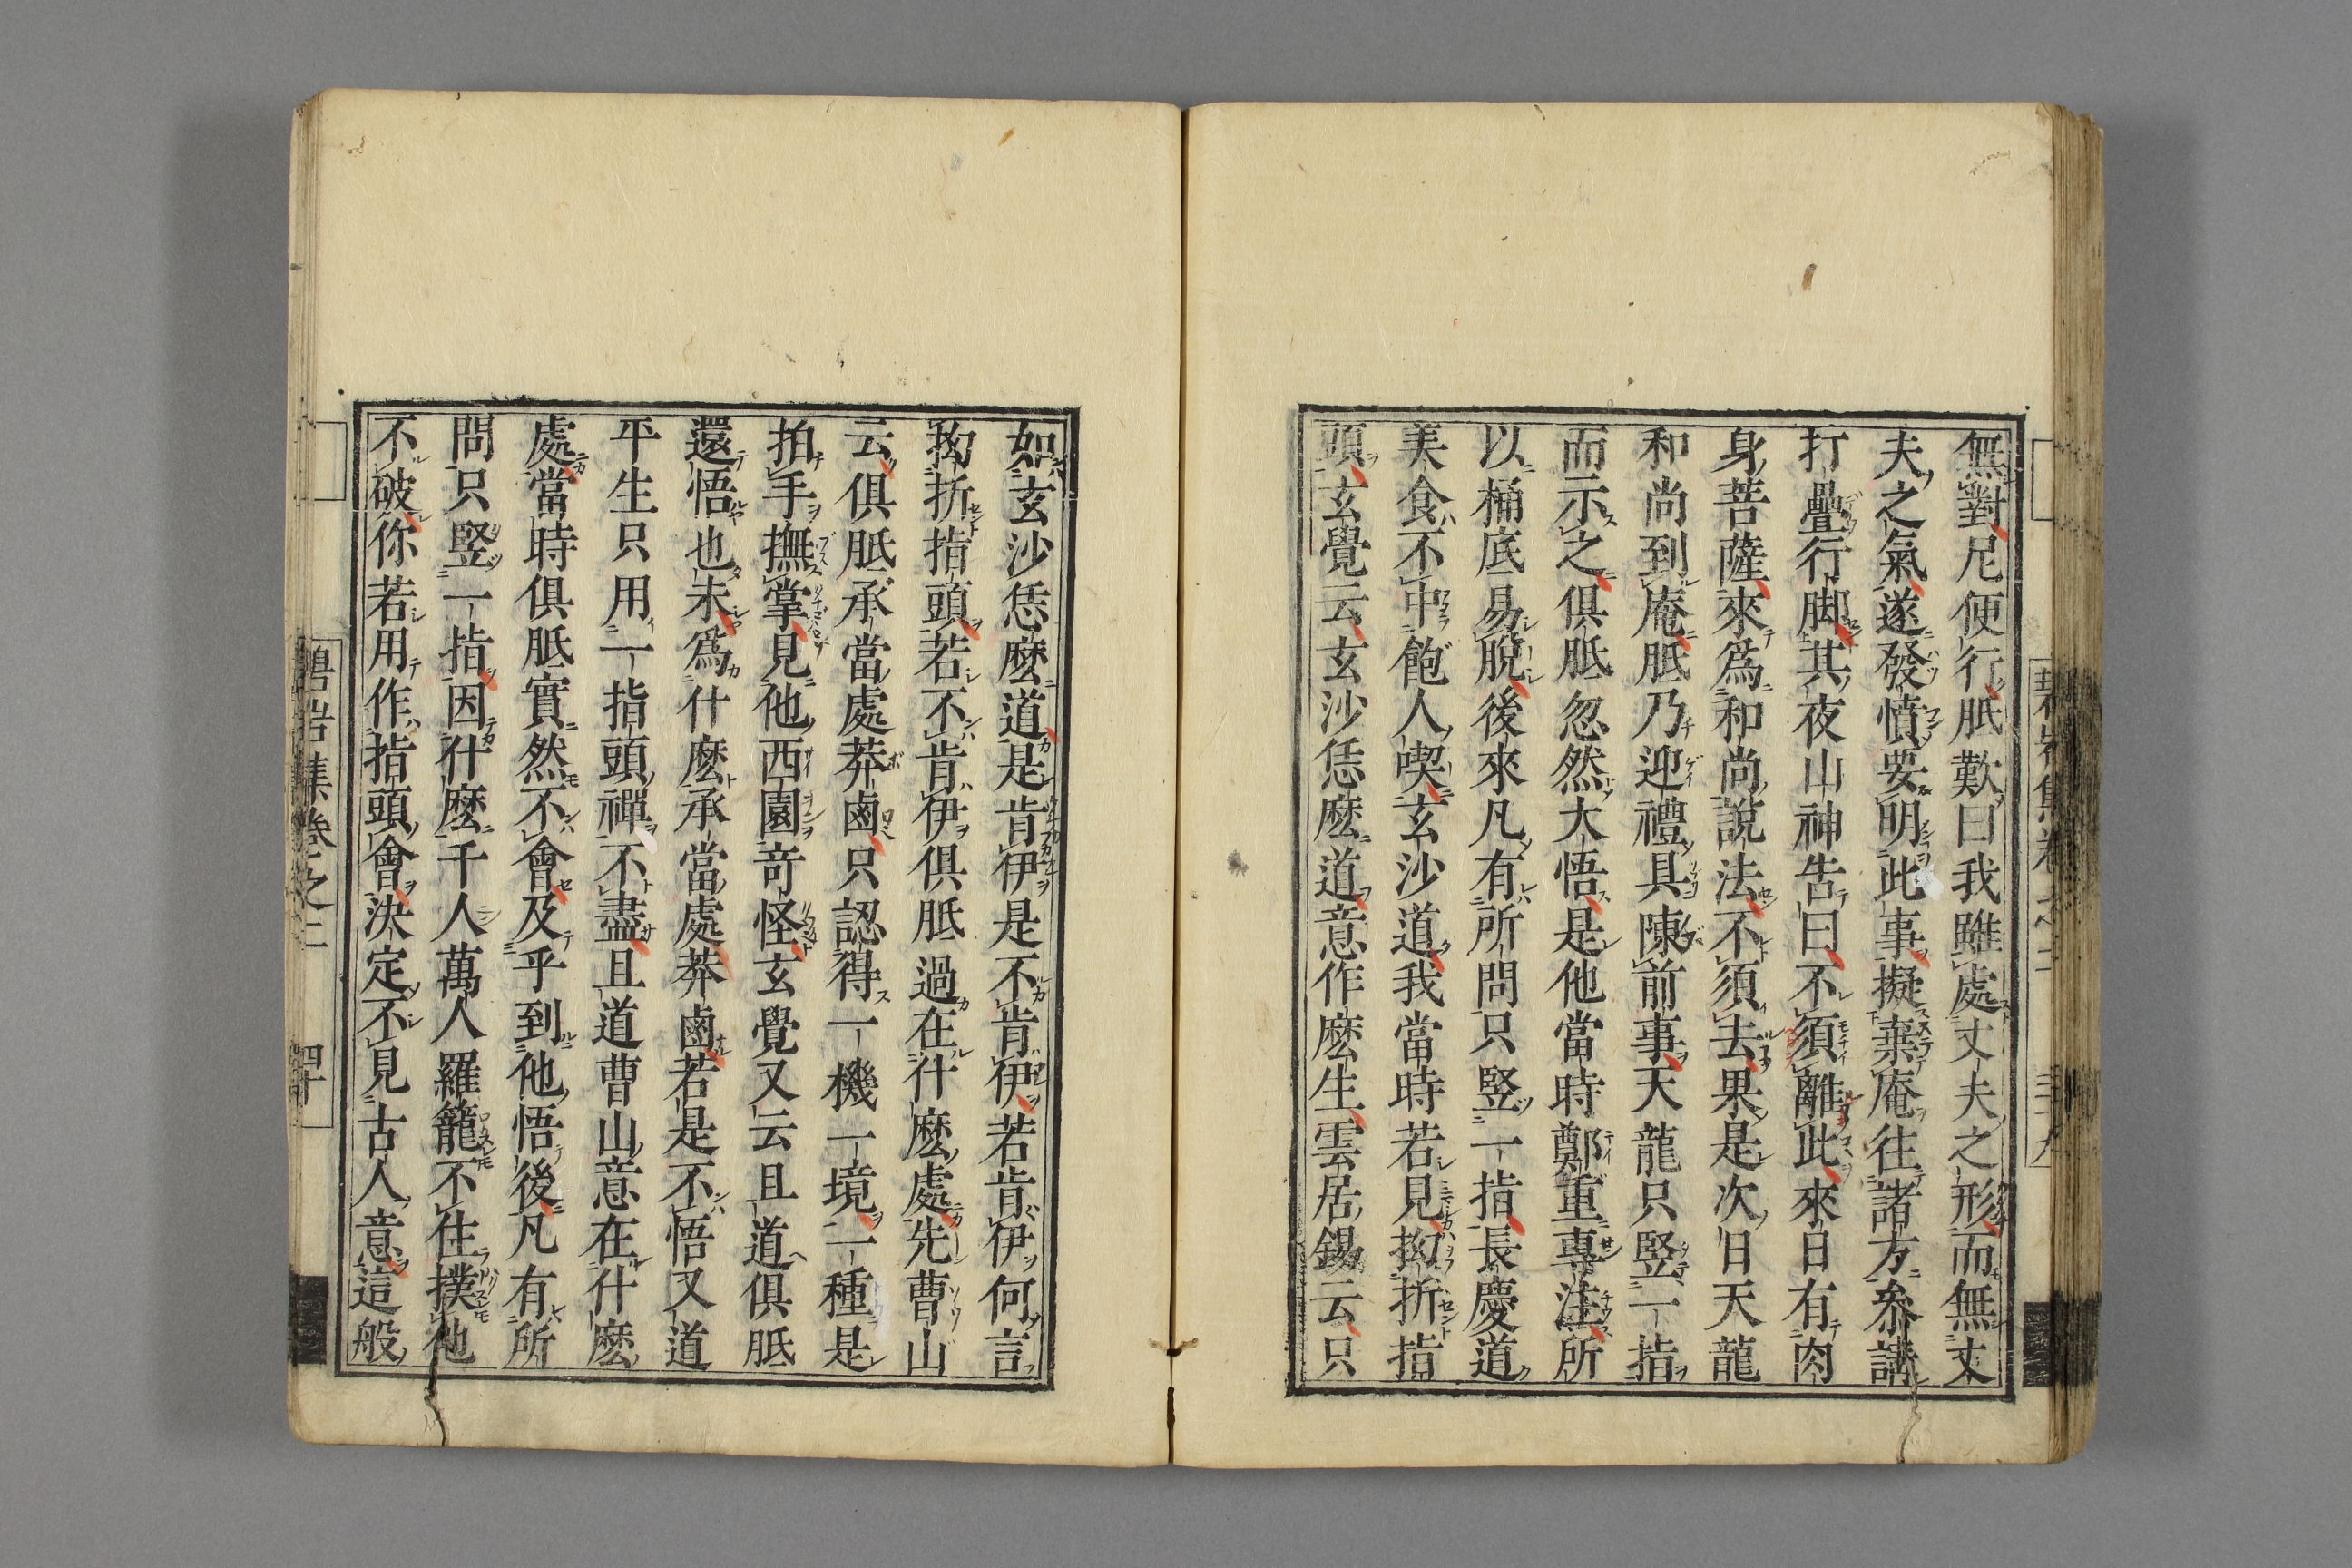 無對尼便行胝歎曰我雖處丈夫之形而無丈
夫之氣遂發憤要明此事擬棄庵往諸方參請
打疊行脚其夜山神告曰不須離此來日有肉
身菩薩來爲和尚說法不須去果是次日天龍
和尚到庵胝乃迎禮具陳前事天龍只竪一指
而示之俱胝忽然大悟是他當時鄭重專注所
以桶底易脫後來凡有所問只竪一指長慶道
美食不中飽人喫玄沙道我當時若見拗折指
頭玄覺云玄沙恁麽道意作麽生雲居錫云只
如玄沙恁麽道是肯伊是不肯伊若肯伊何言
拗折指頭若不肯伊俱胝過在什麽處先曹山
云俱胝承當處莽鹵只認得一機一境一種是
拍手撫掌見他西園奇怪玄覺又云且道俱胝
還悟也未爲什麽承當處莽鹵若是不悟又道
平生只用一指頭禪不盡且道曹山意在什麽
處當時俱胝實然不會及乎到他悟後凡有所
問只竪一指因什麽千人萬人羅籠不住撲他
不破你若用作指頭會決定不見古人意這般
碧岩集卷之二 四十